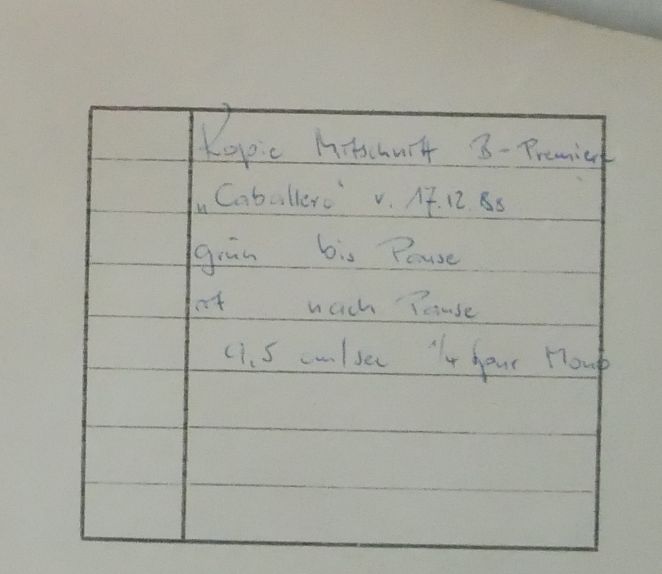 Kopie Mitschnitt B-Premiere
„Caballero" v. 17.12.88
grün bis Pause
rot nach Pause
9,5 cm/sec 1/4 Spur Mono